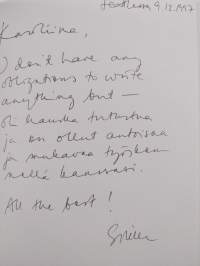 9.12.1997
Karoliina,
I don't have any
obligations to write
anything but —
oli hauska tutustua
ja on ollut antoisaa
ja mukavaa työsken
nellä kanssasi.
All the best!